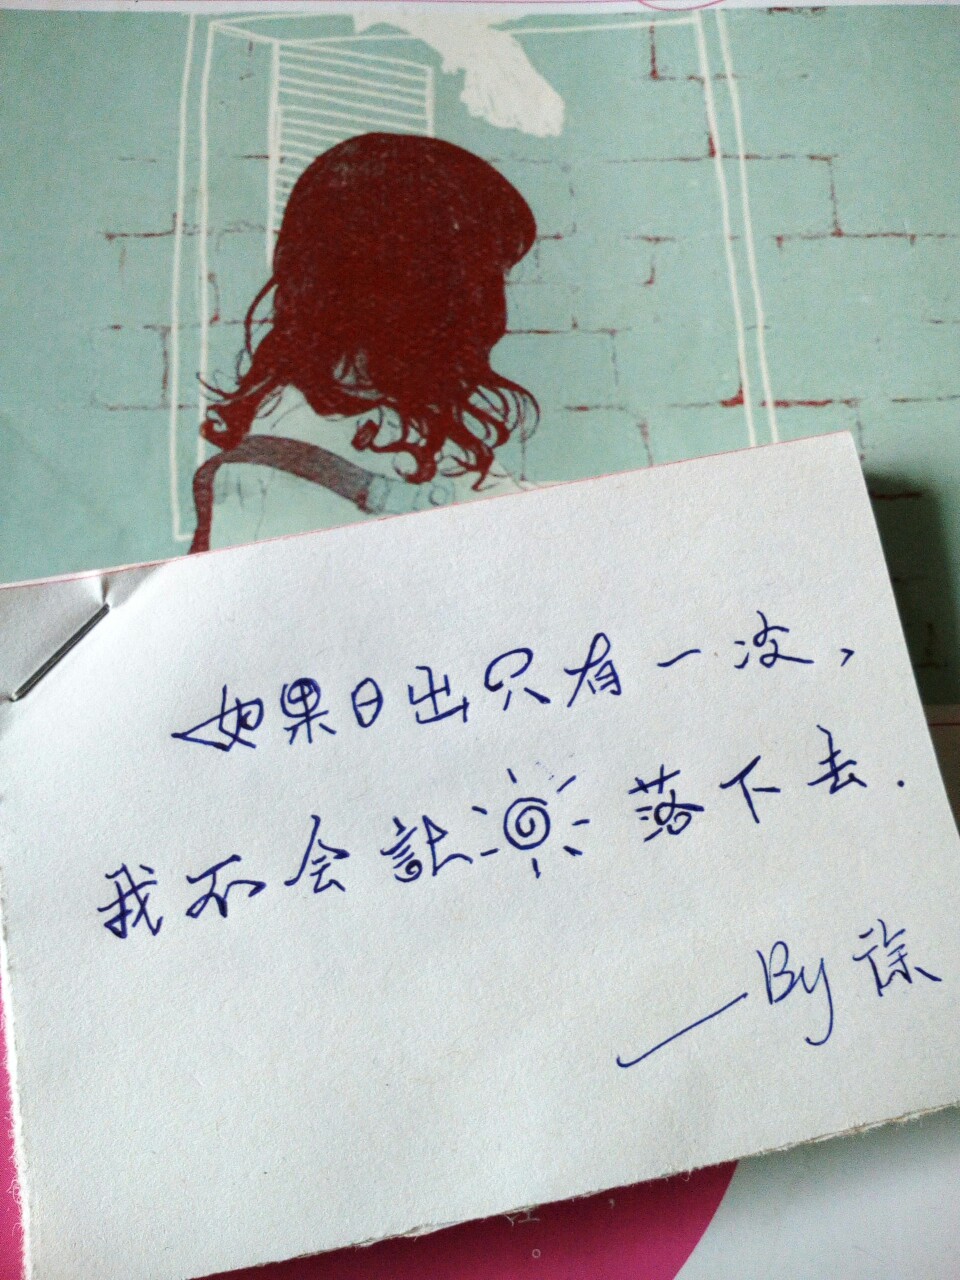 如果日出只有一次,
我不会让☀落下去.
——By 徐
。